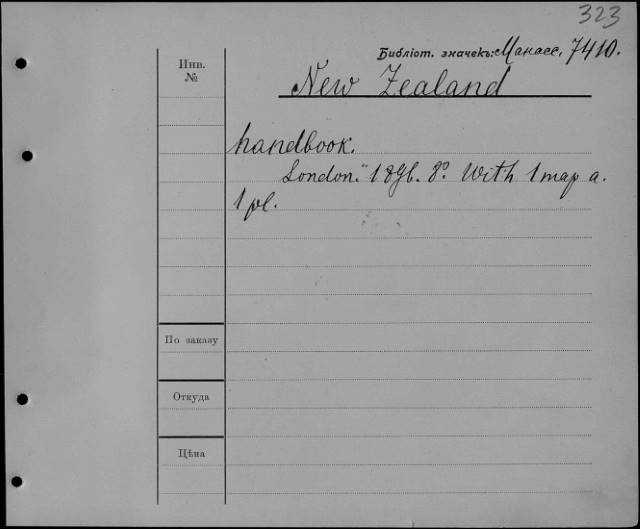 323
Библіот. значекъ: Манасс. 7410.
Инв.
№
New Zealand
handbook.
London. 1896. 8° With 1 map a.
1 pl.
По заказу
Откуда
Цѣна